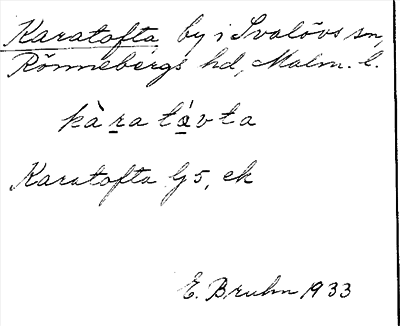 Karatofta by i Svalövs sn,
Rönnebergs hd, Malm. l.
kàratávta
Karatofta G 5, ek
E. Bruhn 1933